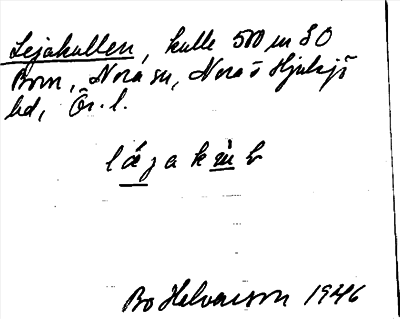 Lejakullen, kulle 500 m SO
Born, Nora sn, Nora o Hjulsjö
bd, Ör. l.
Bo Halvarson 1946